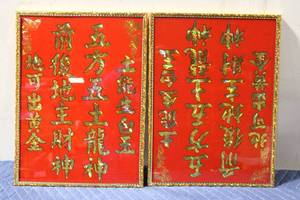 土能生白玉
五方五土龍神
前後地主財神
地可出黃金
土能生白玉
五方五土龍神
前後地主財神
地可出黃金